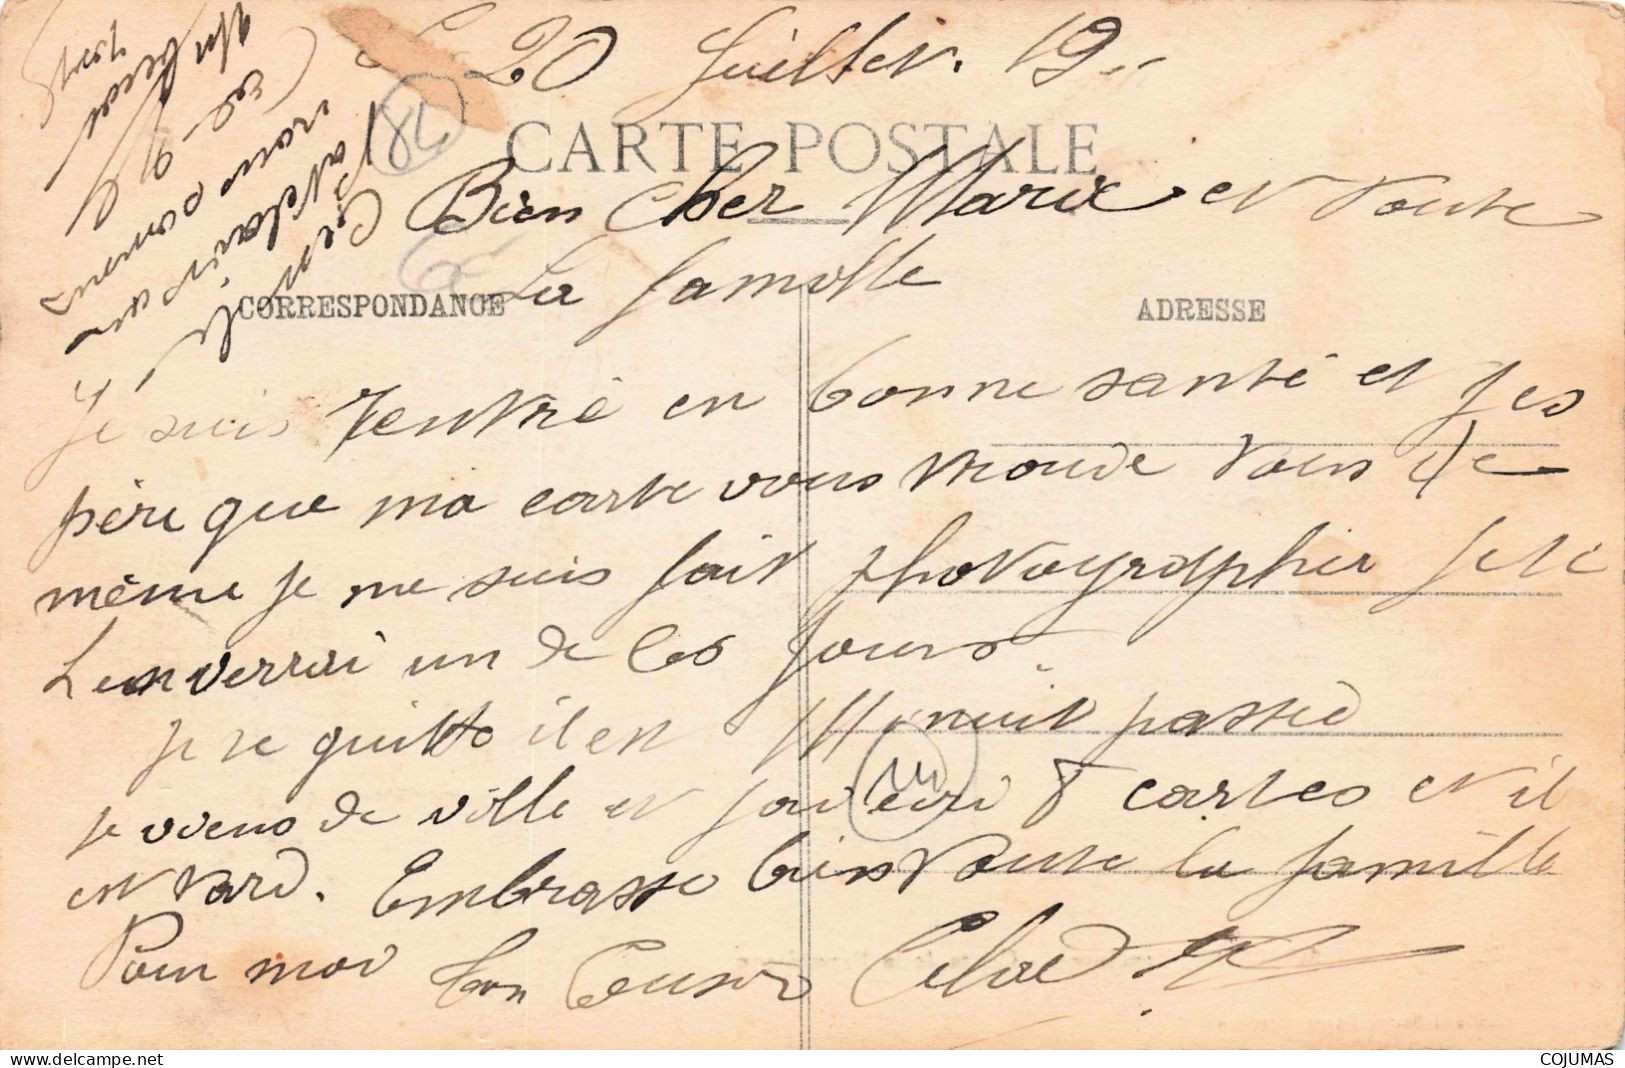 Le 20 Juillet. 19..
84
CARTE POSTALE
Bien Cher Marie et toute
La famille
CORRESPONDANCE
ADRESSE
Je suis rentré en bonne santé et jes
père que ma carte vous trouve tous de
même je me suis fait photographier je te
Lenverrai un de ces jours.
je te quitte il est Minuit passé
je viens de ville et jai écri 8 cartes et il
et tard. Embrasse bien toute la famille
Pour moi ton Cousin
C'est
vous
COJUMAS